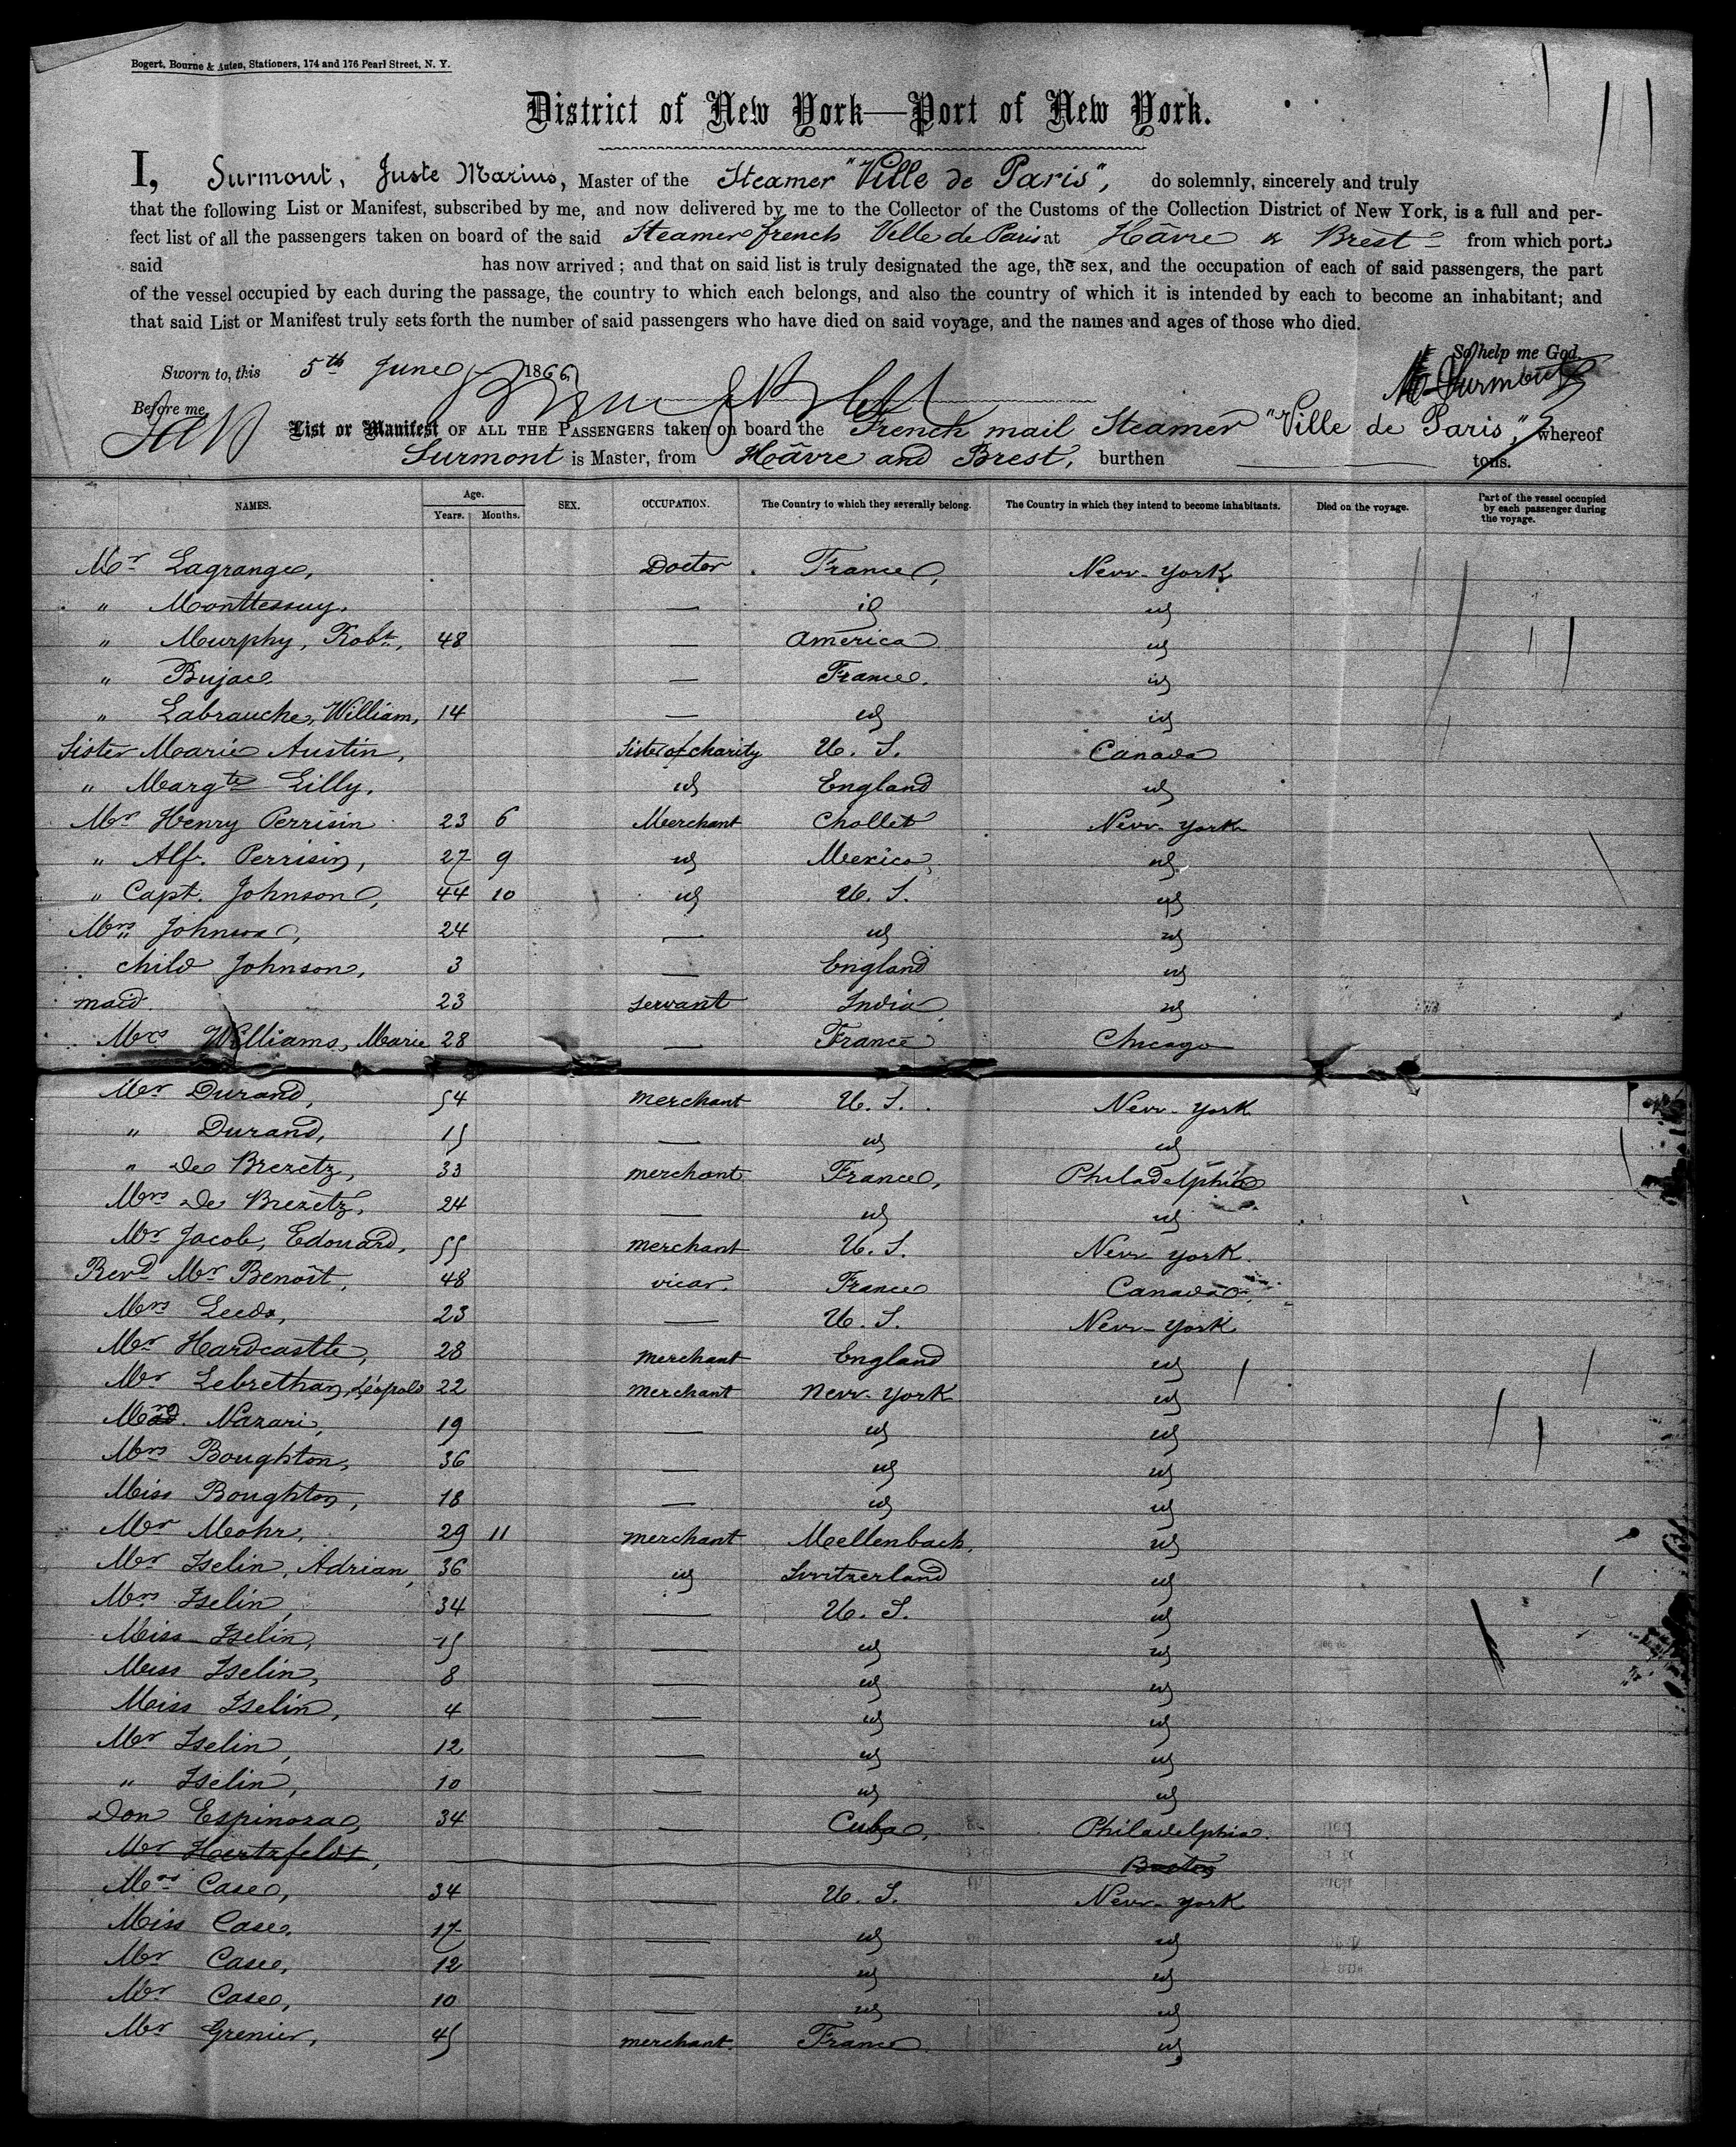 Bogert, Bourne & Auten, Stationers, 174 and 176 Pearl Street, N. Y.
District of New York—Port of New York.
I, Surmont, Juste Marius, Master of the Steamer "Ville de Paris", do solemnly, sincerely and truly
that the following List or Manifest, subscribed by me, and now delivered by me to the Collector of the Customs of the Collection District of New York, is a full and per-
fect list of all the passengers taken on board of the said Steamer french Ville de Paris at Hâvre & Brest from which port
said has now arrived; and that on said list is truly designated the age, the sex, and the occupation of each of said passengers, the part
of the vessel occupied by each during the passage, the country to which each belongs, and also the country of which it is intended by each to become an inhabitant; and
that said List or Manifest truly sets forth the number of said passengers who have died on said voyage, and the names and ages of those who died.
So help me God
Sworn to, this 5th June 1866
Surmont
Before me,
List or Manifest OF ALL THE PASSENGERS taken on board the French mail Steamer "Ville de Paris," whereof
Surmont is Master, from Hâvre and Brest, burthen tons.
NAMES. Age. Years. Months. SEX. OCCUPATION. The Country to which they severally belong. The Country in which they intend to become inhabitants. Died on the voyage. Part of the vessel occupied by each passenger during the voyage.
Mr Lagrange, Doctor France, New-York
" Monttessuy. — id id
" Murphy, Robt, 48 — America id
" Bujac. — France. id
" Labrauche, William, 14 — id id
Sister Marie Austin, Sister of charity U. S. Canada
" Margte Lilly. id England id
Mr Henry Perrisin 23 6 Merchant Chollet New-York
" Alf. Perrisin, 27 9 id Mexico, id
" Capt. Johnson, 44 10 id U. S. id
Mrs " Johnson, 24 — id id
child Johnson, 3 — England id
maid. 23 servant India, id
Mrs Williams, Marie 28 — France Chicago
Mr Durand, 54 merchant U. S. New-York
" Durand, 15 — id id
" De Brezetz, 33 merchant France, Philadelphia
Mrs De Brezetz, 24 — id id
Mr Jacob, Edouard, 55 merchant U. S. New-York
Revd Mr Benoît, 48 vicar. France Canada
Mrs Leeds, 23 — U. S. New-York
Mr Hardcastle, 28 merchant England id
Mr Lebrethon, Léopold 22 merchant New-York id
Nazari, 19 — id id
Mrs Boughton, 36 — id id
Miss Boughton, 18 — id id
Mr Mohr, 29 11 merchant Mellenbach. id
Mr Iselin, Adrian, 36 id Switzerland id
Mrs Iselin, 34 — U. S. id
Miss Iselin, 15 — id id
Miss Iselin, 8 — id id
Miss Iselin, 4 — id id
Mr Iselin, 12 — id id
" Iselin, 10 — id id
Don Espinoza, 34 — Cuba, Philadelphia.
Mr Hertzfeldt, Boston
Mrs Case, 34 — U. S. New-York
Miss Case, 17 — id id
Mr Case, 12 — id id
Mr Case, 10 — id id
Mr Grenier, 45 merchant. France id